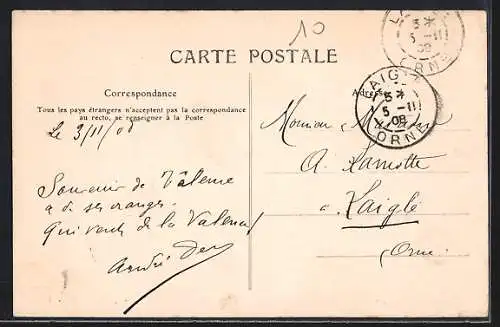 10
CARTE POSTALE
Correspondance
Tous les pays étrangers n'acceptent pas la correspondance
au recto, se renseigner à la Poste
Le 3/11/08
Souvenir de Valence
a di ses oranges
qui vente de la Valence
André
Adresse
LAIGLE
5 -11
08
ORNE
5 -11
08
ORNE
Monsieur
A. Lamotte
à Laigle
Orne